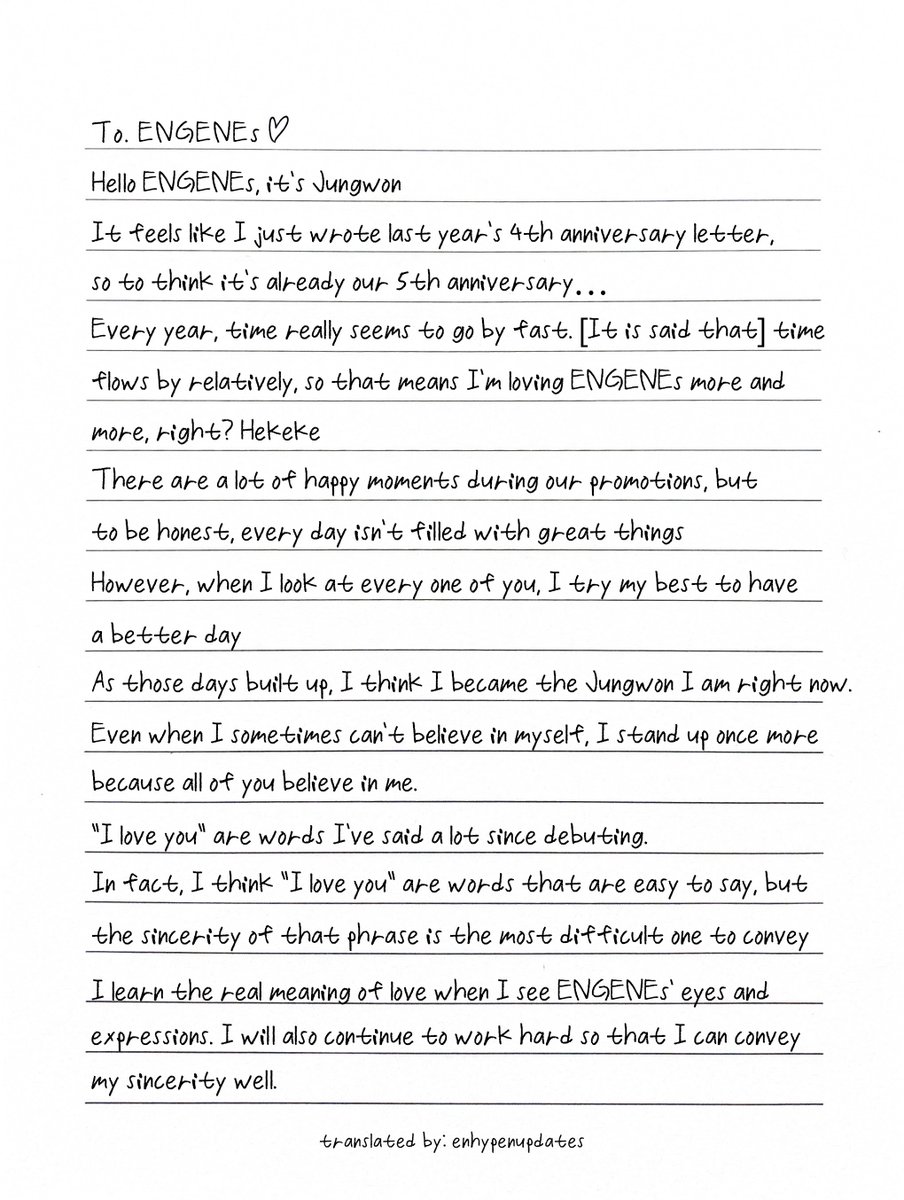 To. ENGENEs ♡
Hello ENGENEs, it's Jungwon
It feels like I just wrote last year's 4th anniversary letter,
so to think it's already our 5th anniversary...
Every year, time really seems to go by fast. [It is said that] time
flows by relatively, so that means I'm loving ENGENEs more and
more, right? Hekeke
There are a lot of happy moments during our promotions, but
to be honest, every day isn't filled with great things
However, when I look at every one of you, I try my best to have
a better day
As those days built up, I think I became the Jungwon I am right now.
Even when I sometimes can't believe in myself, I stand up once more
because all of you believe in me.
"I love you" are words I've said a lot since debuting.
In fact, I think "I love you" are words that are easy to say, but
the sincerity of that phrase is the most difficult one to convey
I learn the real meaning of love when I see ENGENEs' eyes and
expressions. I will also continue to work hard so that I can convey
my sincerity well.
translated by: enhypenupdates